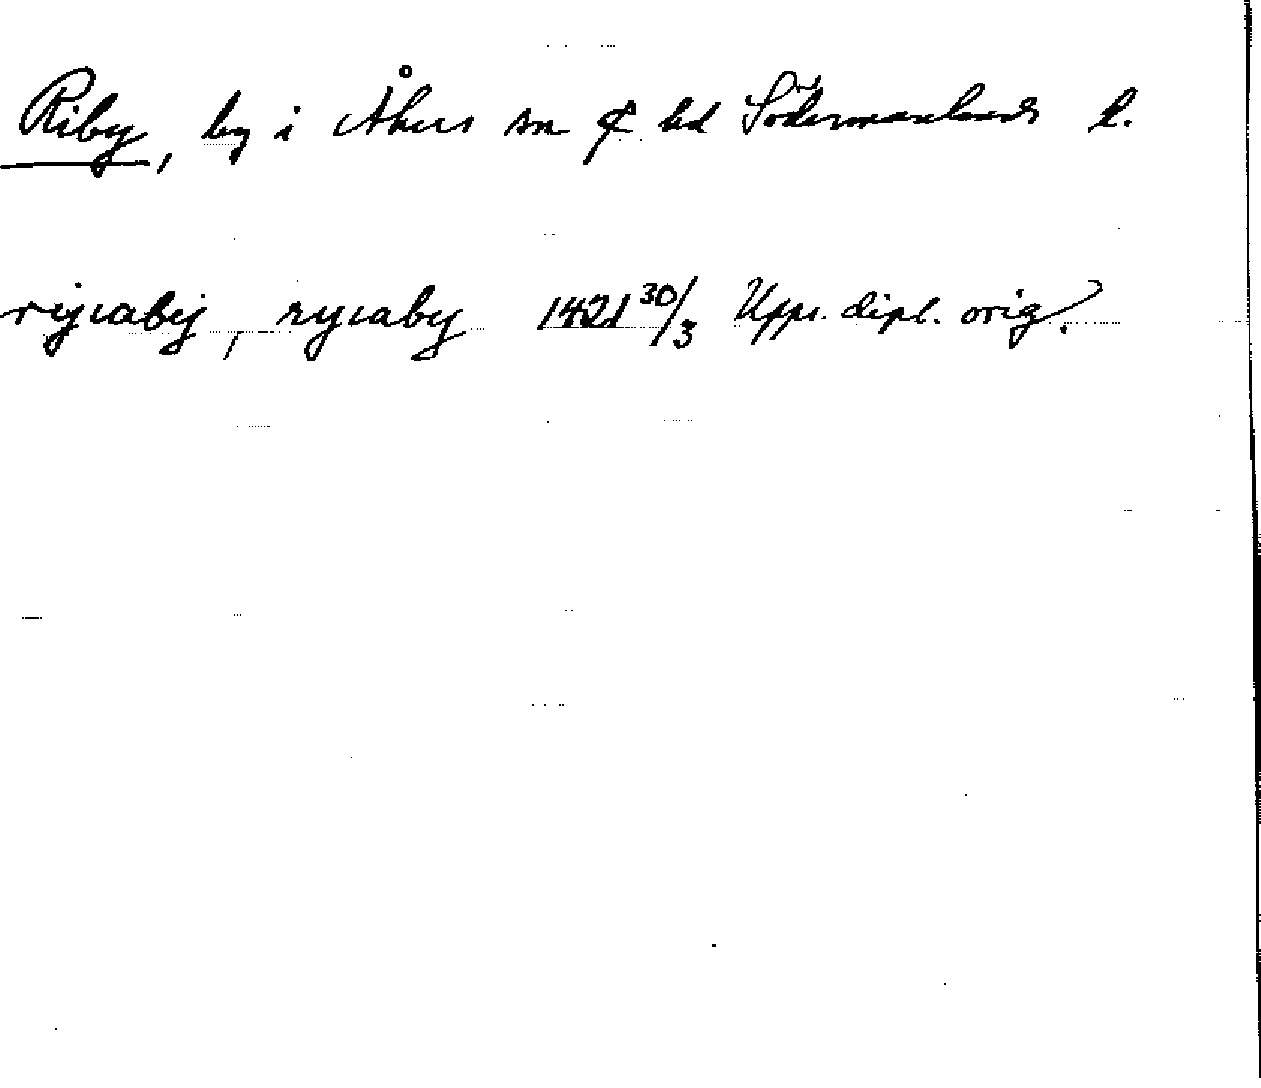 Riby, by i Åkers sn & hd Södermanlands l.
rijcabij, rycaby 1421 30/3 Upps. dipl. orig.